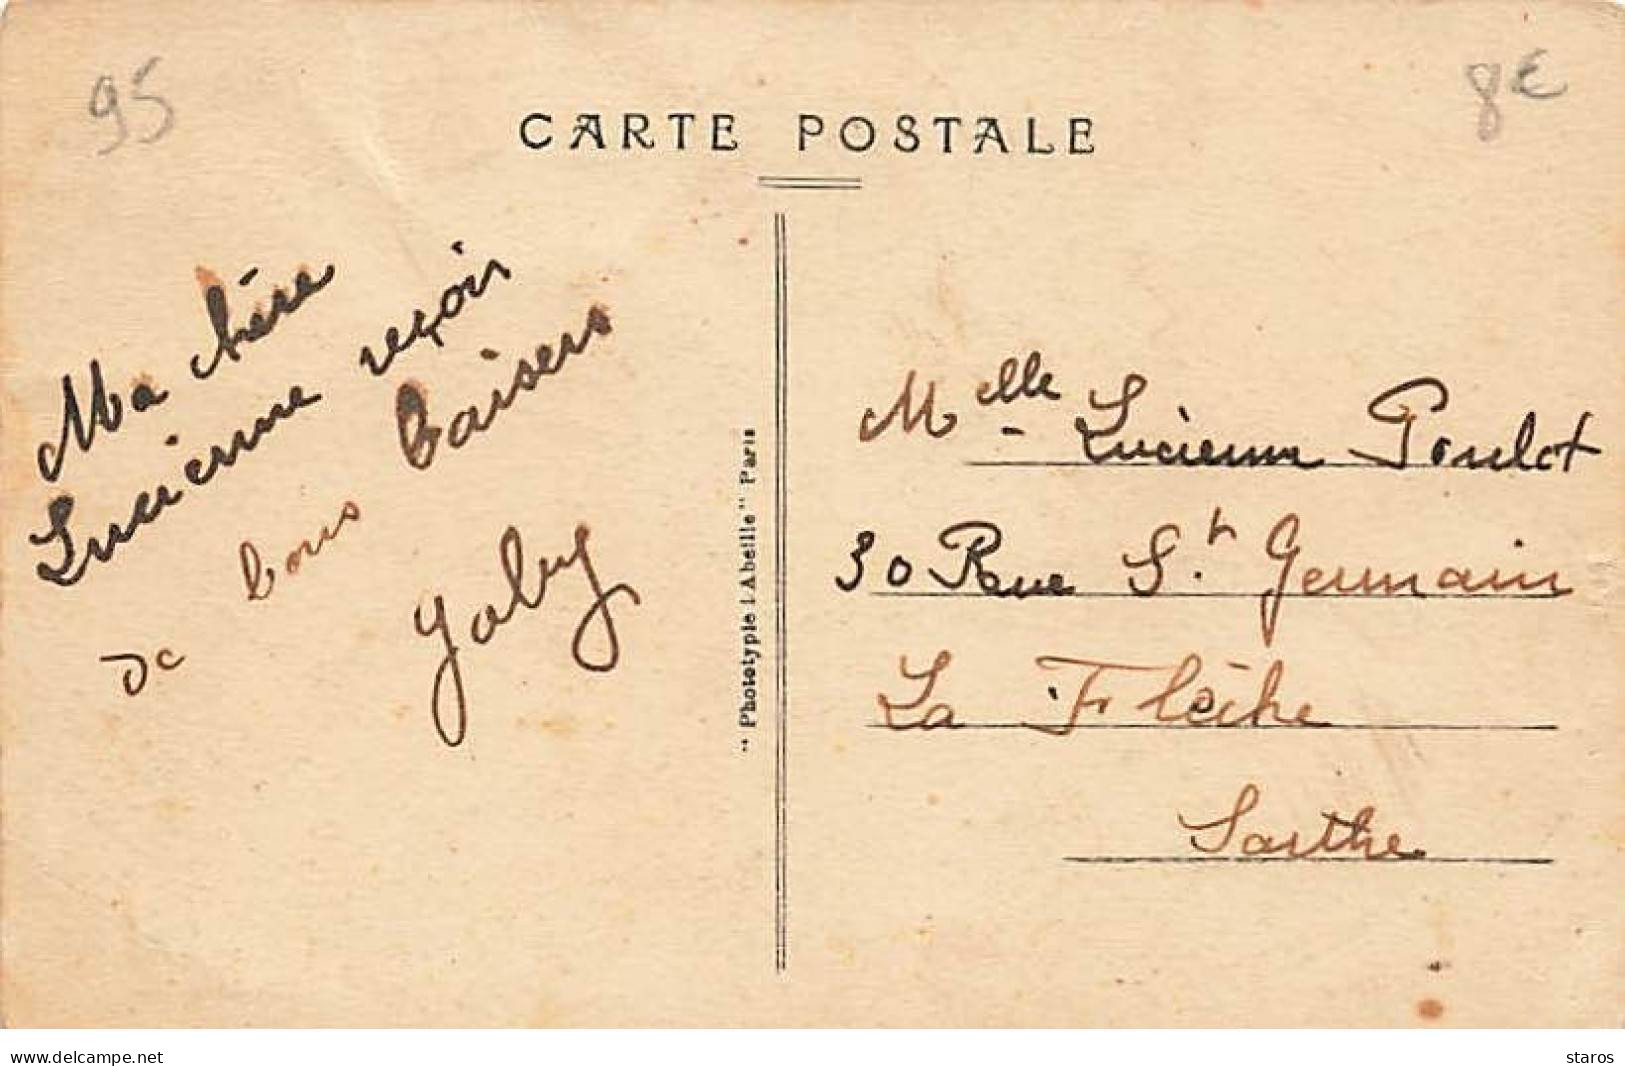 95
8€
CARTE POSTALE
Ma chère
Lucienne reçoir
de bons baisers
Gaby
" Phototypie L'Abeille " Paris
Melle Lucienne Poulot
30 Rue St Germain
La Flèche
Sarthe
delcampe.net
staros